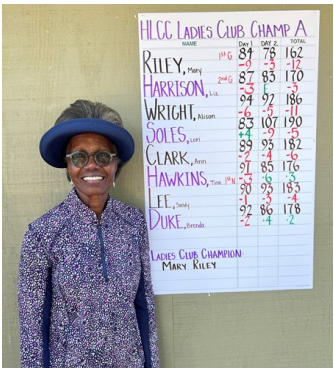 HLCC LADIES CLUB CHAMP A
NAME DAY 1 DAY 2 TOTAL
RILEY, Mary 1st G 84 78 162
-9 -3 -12
HARRISON, Liz 2nd G 87 83 170
-3 E -3
WRIGHT, Alison 94 92 186
-6 -5 -11
SOLES, Lori 83 107 190
+4 -9 -5
CLARK, Ann 89 93 182
-2 -4 -6
HAWKINS, 1st N 91 85 176
-3
LEE, Sandy 90 93 183
-1 -3 -4
DUKE, Brenda 92 86 178
-2
LADIES CLUB CHAMPION:
MARY RILEY